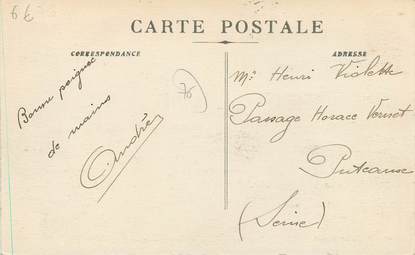 6€
CARTE POSTALE
CORRESPONDANCE
ADRESSE
Bonne poignée
de mains
André
75
Mr Henri Violette
Passage Horace Vernet
Puteaux
(Seine)